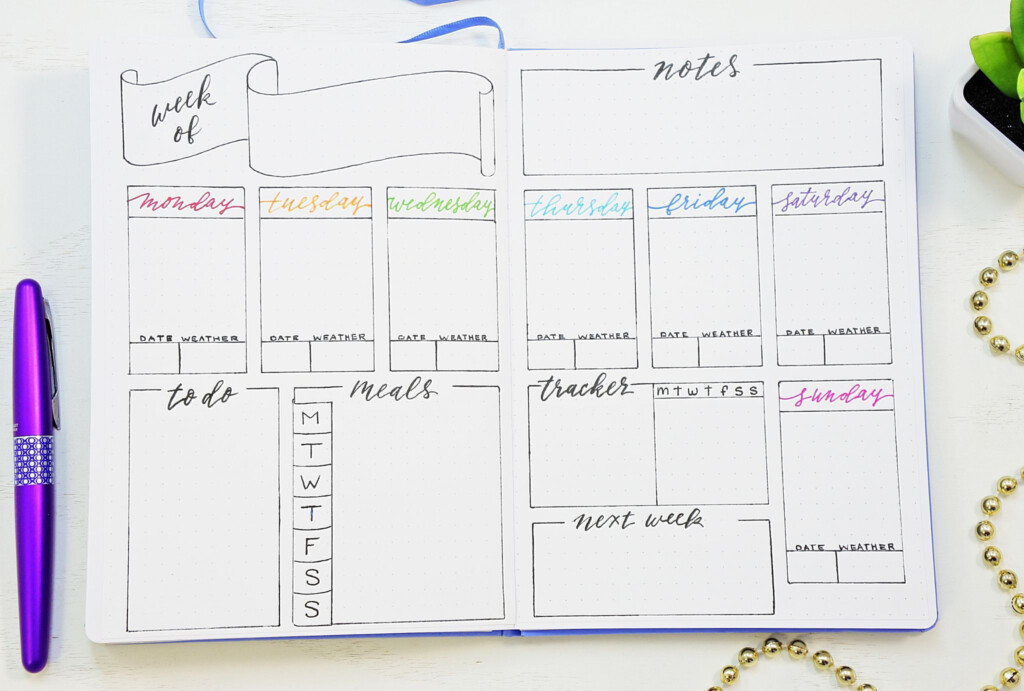 week
of
notes
monday
tuesday
wednesday
thursday
friday
saturday
DATE WEATHER
DATE WEATHER
DATE WEATHER
DATE WEATHER
DATE WEATHER
DATE WEATHER
to do
meals
M
T
W
T
F
S
S
tracker
m t w t f s s
sunday
DATE WEATHER
next week